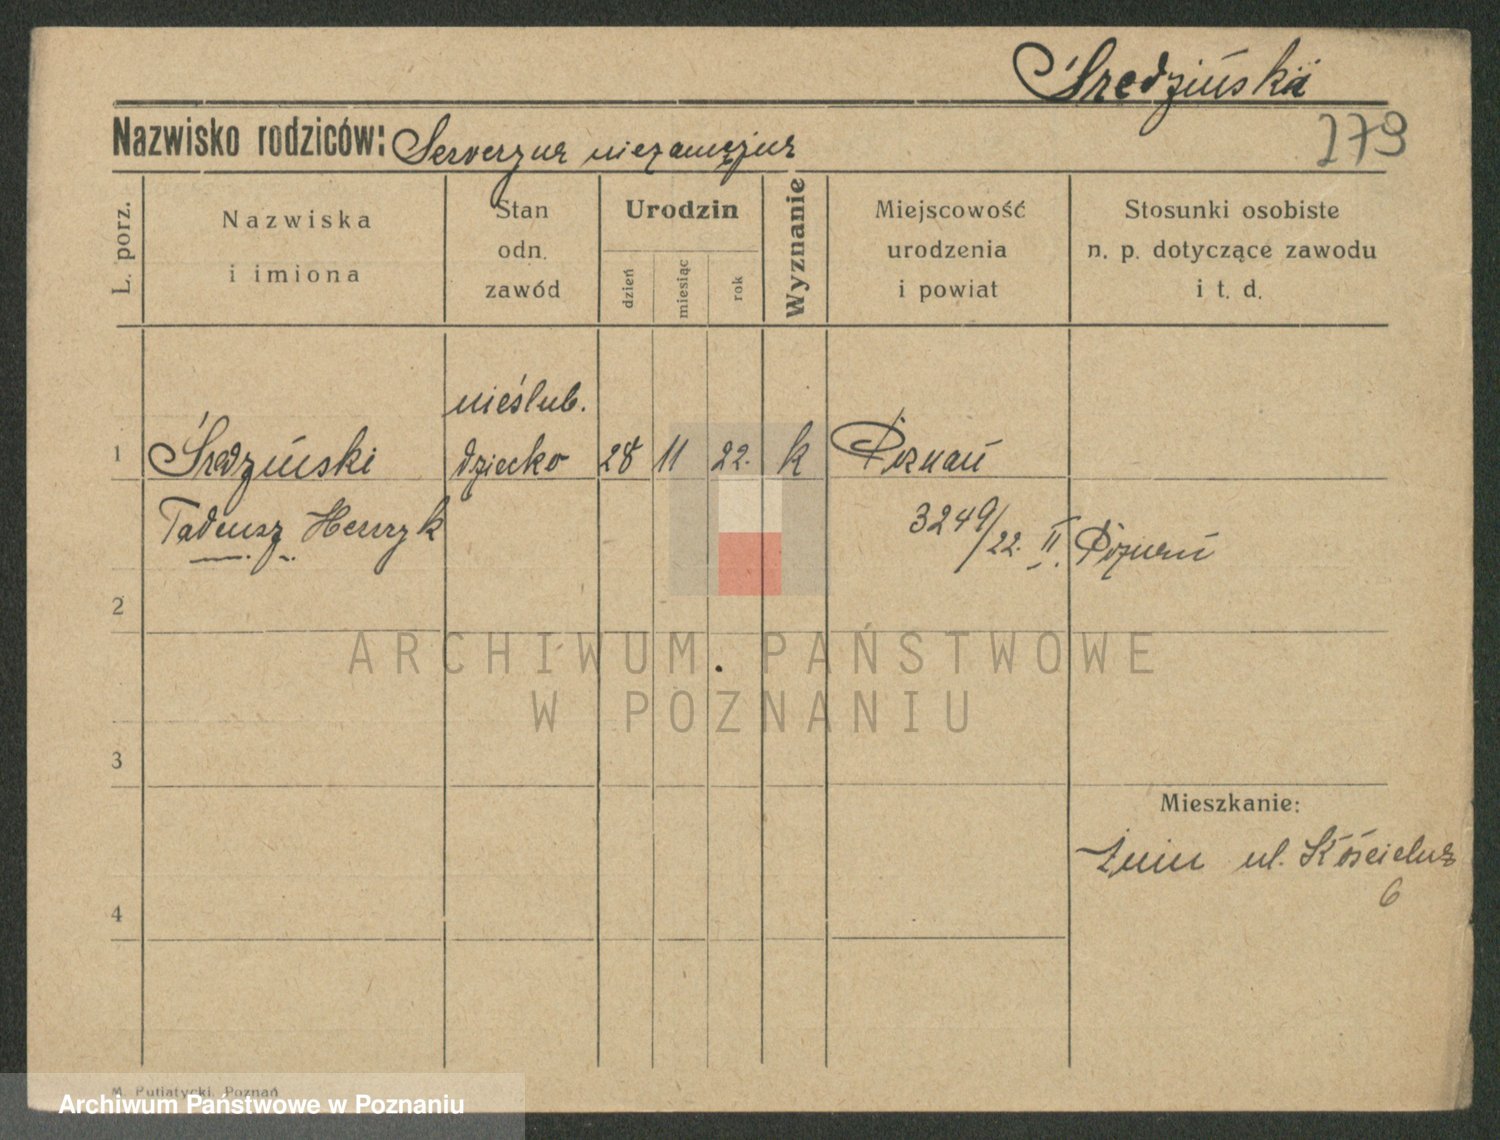 Średzińska
279
Nazwisko rodziców: Seweryna niezamężna
L. porz.
Nazwiska i imiona
Stan odn. zawód
Urodzin
dzień
miesiąc
rok
Wyznanie
Miejscowość urodzenia i powiat
Stosunki osobiste n. p. dotyczące zawodu i t. d.
nieślub.
1 Średziński dziecko 28 11 22. k Poznań
Tadeusz Henryk 3249/22. II. Poznań
2
ARCHIWUM PAŃSTWOWE
W POZNANIU
3
Mieszkanie:
Żnin ul. Kościelna
6
4
M. Putiatycki, Poznań
Archiwum Państwowe w Poznaniu